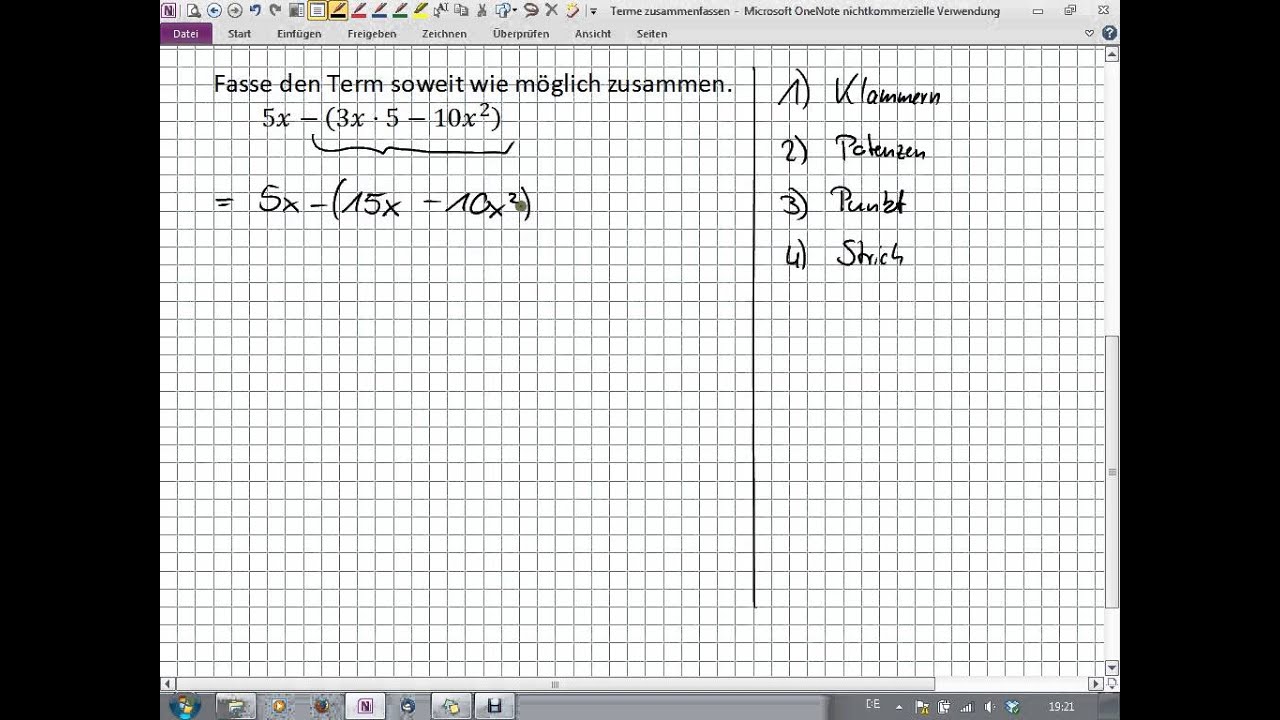 Terme zusammenfassen - Microsoft OneNote nichtkommerzielle Verwendung
Datei Start Einfügen Freigeben Zeichnen Überprüfen Ansicht Seiten
Fasse den Term soweit wie möglich zusammen.
5x − (3x · 5 − 10x²)
= 5x − (15x − 10x²)
1) Klammern
2) Potenzen
3) Punkt
4) Strich
DE 19:21